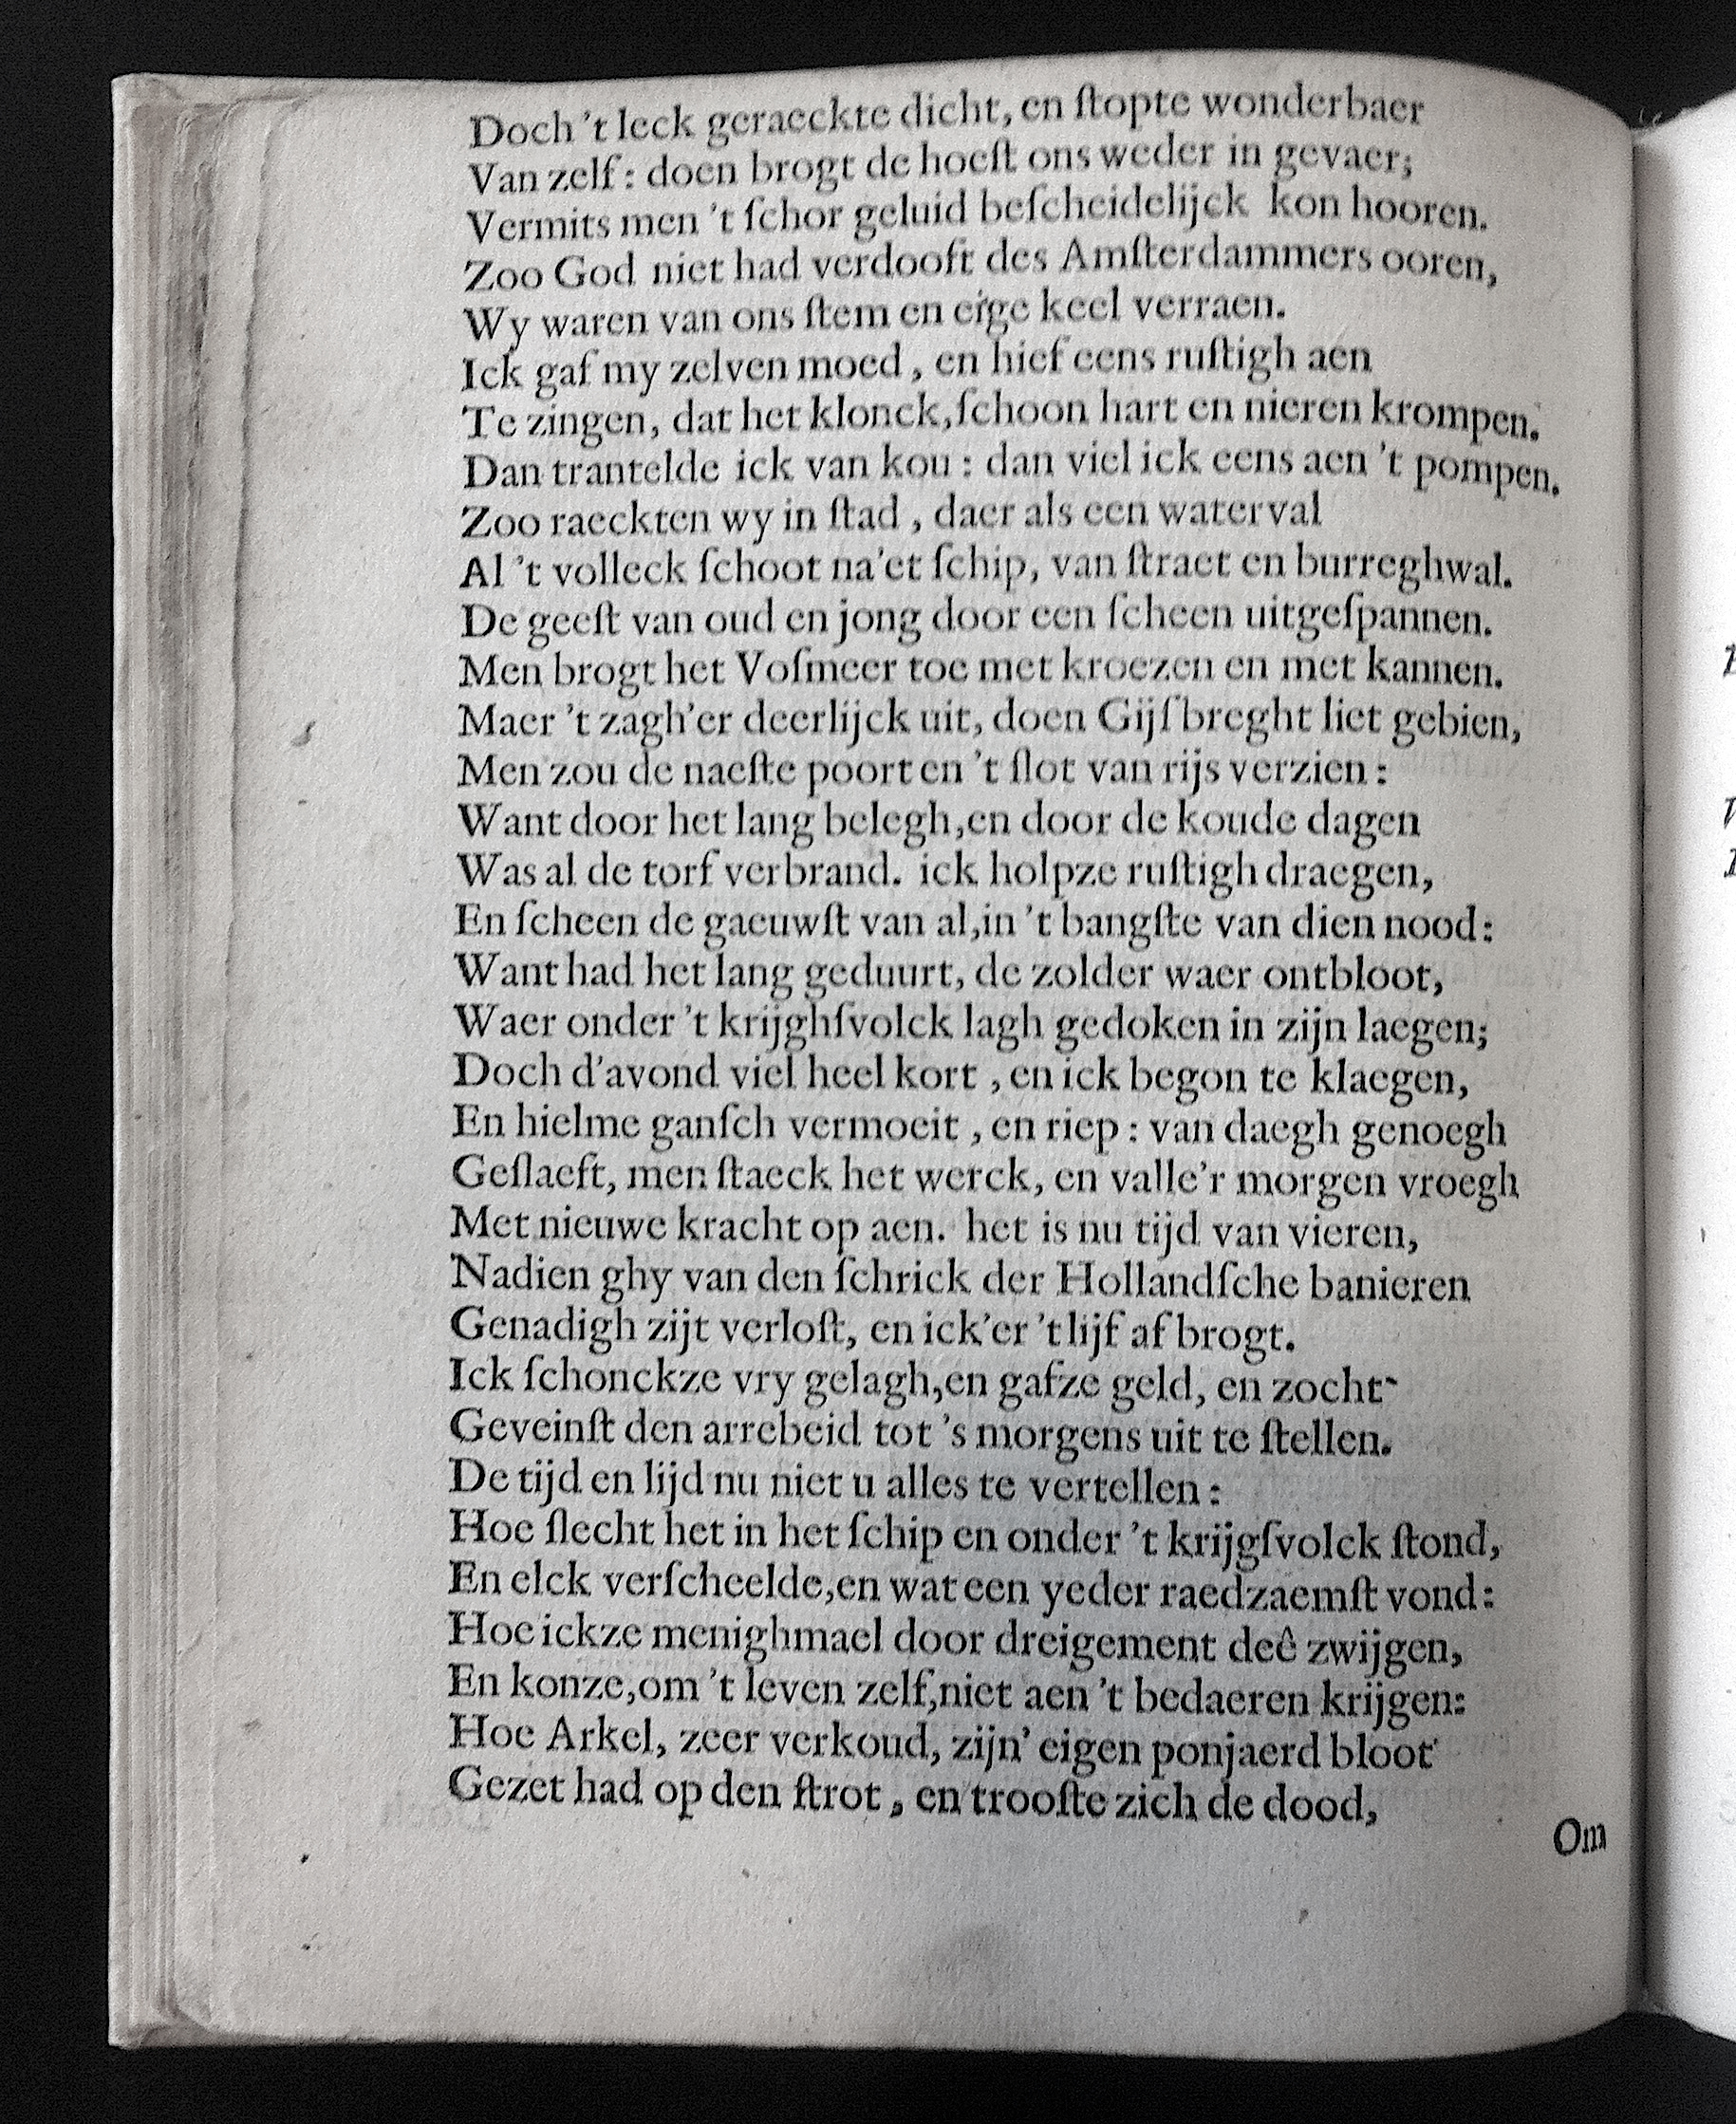 Doch 't leck geraeckte dicht, en ſtopte wonderbaer
Van zelf: doen brogt de hoeſt ons weder in gevaer;
Vermits men 't ſchor geluid beſcheidelijck kon hooren.
Zoo God niet had verdooft des Amſterdammers ooren,
Wy waren van ons ſtem en eige keel verraen.
Ick gaf my zelven moed, en hief eens ruſtigh aen
Te zingen, dat het klonck, ſchoon hart en nieren krompen.
Dan trantelde ick van kou: dan viel ick eens aen 't pompen.
Zoo raeckten wy in ſtad, daer als een waterval
Al 't volleck ſchoot na'et ſchip, van ſtraet en burreghwal.
De geeſt van oud en jong door een ſcheen uitgeſpannen.
Men brogt het Voſmeer toe met kroezen en met kannen.
Maer 't zagh'er deerlijck uit, doen Gijſbreght liet gebien,
Men zou de naeſte poort en 't ſlot van rijs verzien:
Want door het lang belegh, en door de koude dagen
Was al de torf verbrand. ick holpze ruſtigh draegen,
En ſcheen de gaeuwſt van al, in 't bangſte van dien nood:
Want had het lang geduurt, de zolder waer ontbloot,
Waer onder 't krijghſvolck lagh gedoken in zijn laegen;
Doch d'avond viel heel kort, en ick begon te klaegen,
En hielme ganſch vermoeit, en riep: van daegh genoegh
Geſlaeft, men ſtaeck het werck, en valle'r morgen vroegh
Met nieuwe kracht op aen. het is nu tijd van vieren,
Nadien ghy van den ſchrick der Hollandſche banieren
Genadigh zijt verloſt, en ick'er 't lijf af brogt.
Ick ſchonckze vry gelagh, en gafze geld, en zocht
Geveinſt den arrebeid tot 's morgens uit te ſtellen.
De tijd en lijd nu niet u alles te vertellen:
Hoe ſlecht het in het ſchip en onder 't krijgſvolck ſtond,
En elck verſcheelde, en wat een yeder raedzaemſt vond:
Hoe ickze menighmael door dreigement deê zwijgen,
En konze, om 't leven zelf, niet aen 't bedaeren krijgen:
Hoe Arkel, zeer verkoud, zijn' eigen ponjaerd bloot
Gezet had op den ſtrot, en trooſte zich de dood,
Om